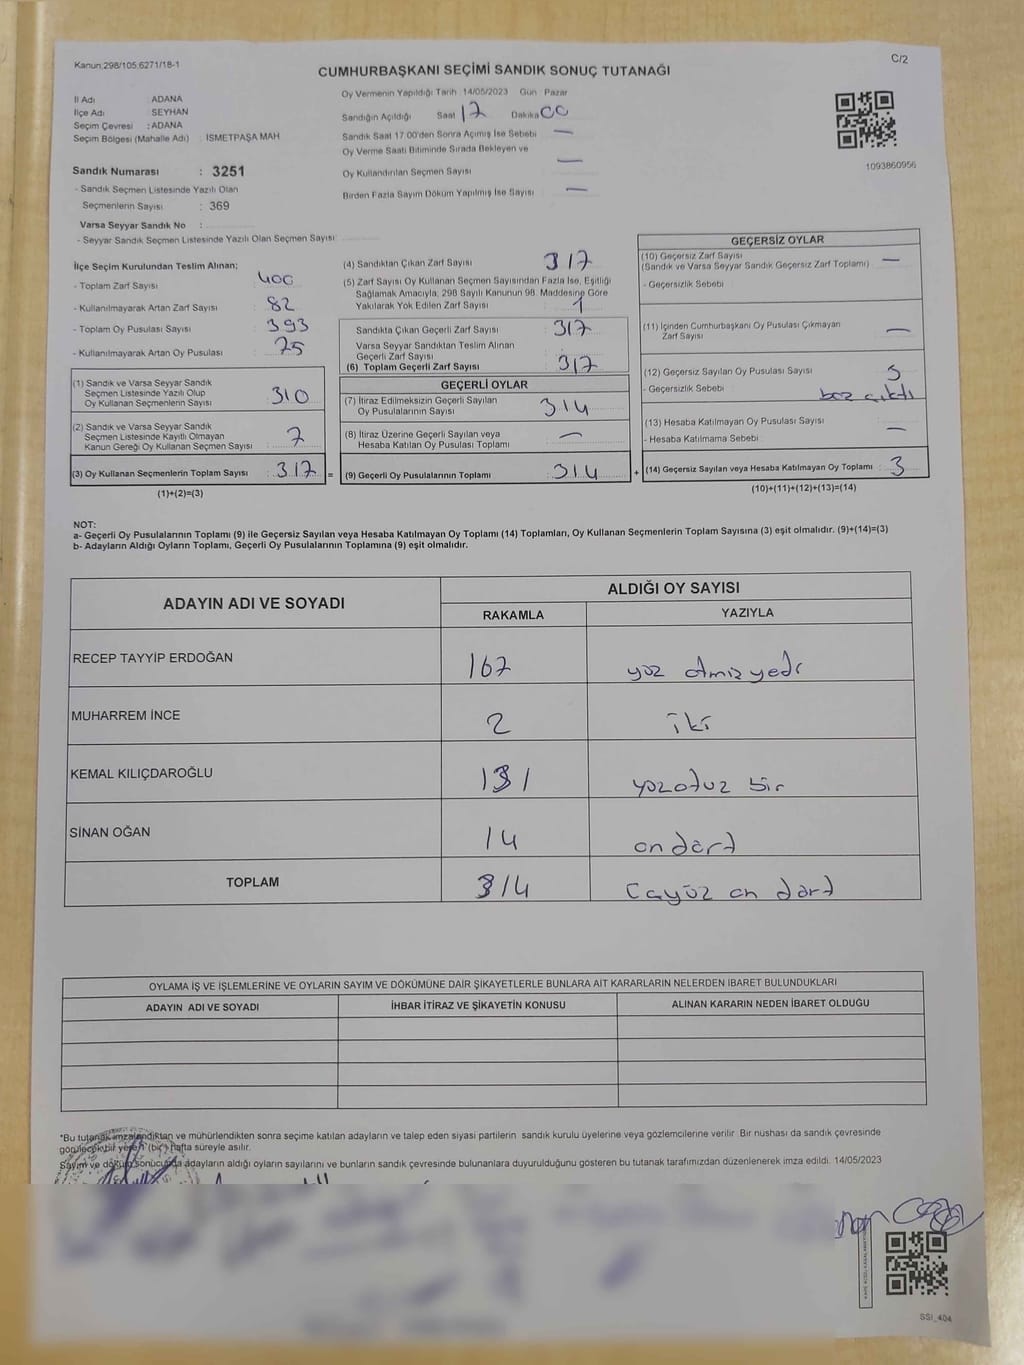 Kanun;298/105;6271/18-1
C/2
CUMHURBAŞKANI SEÇİMİ SANDIK SONUÇ TUTANAĞI
İl Adı : ADANA
İlçe Adı : SEYHAN
Seçim Çevresi : ADANA
Seçim Bölgesi (Mahalle Adı) : İSMETPAŞA MAH
Sandık Numarası : 3251
- Sandık Seçmen Listesinde Yazılı Olan
Seçmenlerin Sayısı : 369
Varsa Seyyar Sandık No :
- Seyyar Sandık Seçmen Listesinde Yazılı Olan Seçmen Sayısı:
Oy Vermenin Yapıldığı Tarih 14/05/2023 Gün : Pazar
Sandığın Açıldığı Saat 17 Dakika 00
Sandık Saat 17.00'den Sonra Açımış İse Sebebi —
Oy Verme Saati Bitiminde Sırada Bekleyen ve
Oy Kullandırılan Seçmen Sayısı —
Birden Fazla Sayım Döküm Yapılmış İse Sayısı —
1093860956
İlçe Seçim Kurulundan Teslim Alınan;
- Toplam Zarf Sayısı : 400
- Kullanılmayarak Artan Zarf Sayısı : 82
- Toplam Oy Pusulası Sayısı : 393
- Kullanılmayarak Artan Oy Pusulası : 75
(1) Sandık ve Varsa Seyyar Sandık
Seçmen Listesinde Yazılı Olup
Oy Kullanan Seçmenlerin Sayısı : 310
(2) Sandık ve Varsa Seyyar Sandık
Seçmen Listesinde Kayıtlı Olmayan
Kanun Gereği Oy Kullanan Seçmen Sayısı : 7
(3) Oy Kullanan Seçmenlerin Toplam Sayısı : 317
(1)+(2)=(3)
(4) Sandıktan Çıkan Zarf Sayısı : 317
(5) Zarf Sayısı Oy Kullanan Seçmen Sayısından Fazla İse, Eşitliği
Sağlamak Amacıyla; 298 Sayılı Kanunun 98. Maddesine Göre
Yakılarak Yok Edilen Zarf Sayısı : 1
Sandıkta Çıkan Geçerli Zarf Sayısı : 317
Varsa Seyyar Sandıktan Teslim Alınan
Geçerli Zarf Sayısı
(6) Toplam Geçerli Zarf Sayısı : 317
=
GEÇERLİ OYLAR
(7) İtiraz Edilmeksizin Geçerli Sayılan
Oy Pusulalarının Sayısı : 314
(8) İtiraz Üzerine Geçerli Sayılan veya
Hesaba Katılan Oy Pusulası Toplamı : —
(9) Geçerli Oy Pusulalarının Toplamı : 314
+
GEÇERSİZ OYLAR
(10) Geçersiz Zarf Sayısı : —
(Sandık ve Varsa Seyyar Sandık Geçersiz Zarf Toplamı)
- Geçersizlik Sebebi :
(11) İçinden Cumhurbaşkanı Oy Pusulası Çıkmayan
Zarf Sayısı : —
(12) Geçersiz Sayılan Oy Pusulası Sayısı : 3
- Geçersizlik Sebebi : boz çıktı
(13) Hesaba Katılmayan Oy Pusulası Sayısı : —
- Hesaba Katılmama Sebebi :
(14) Geçersiz Sayılan veya Hesaba Katılmayan Oy Toplamı : 3
(10)+(11)+(12)+(13)=(14)
NOT:
a- Geçerli Oy Pusulalarının Toplamı (9) ile Geçersiz Sayılan veya Hesaba Katılmayan Oy Toplamı (14) Toplamları, Oy Kullanan Seçmenlerin Toplam Sayısına (3) eşit olmalıdır. (9)+(14)=(3)
b- Adayların Aldığı Oyların Toplamı, Geçerli Oy Pusulalarının Toplamına (9) eşit olmalıdır.
ADAYIN ADI VE SOYADI
ALDIĞI OY SAYISI
RAKAMLA YAZIYLA
RECEP TAYYİP ERDOĞAN 167 yüz atmiz yedi
MUHARREM İNCE 2 iki
KEMAL KILIÇDAROĞLU 131 yüzotuz bir
SİNAN OĞAN 14 on dört
TOPLAM 314 üçyüz on dört
OYLAMA İŞ VE İŞLEMLERİNE VE OYLARIN SAYIM VE DÖKÜMÜNE DAİR ŞİKAYETLERLE BUNLARA AİT KARARLARIN NELERDEN İBARET BULUNDUKLARI
ADAYIN ADI VE SOYADI İHBAR İTİRAZ VE ŞİKAYETİN KONUSU ALINAN KARARIN NEDEN İBARET OLDUĞU
*Bu tutanak imzalandıktan ve mühürlendikten sonra seçime katılan adayların ve talep eden siyasi partilerin sandık kurulu üyelerine veya gözlemcilerine verilir. Bir nüshası da sandık çevresinde
görülecek bir yere 1 (bir) hafta süreyle asılır.
Sayım ve döküm sonucunda adayların aldığı oyların sayılarını ve bunların sandık çevresinde bulunanlara duyurulduğunu gösteren bu tutanak tarafımızdan düzenlenerek imza edildi. 14/05/2023
SSI_404